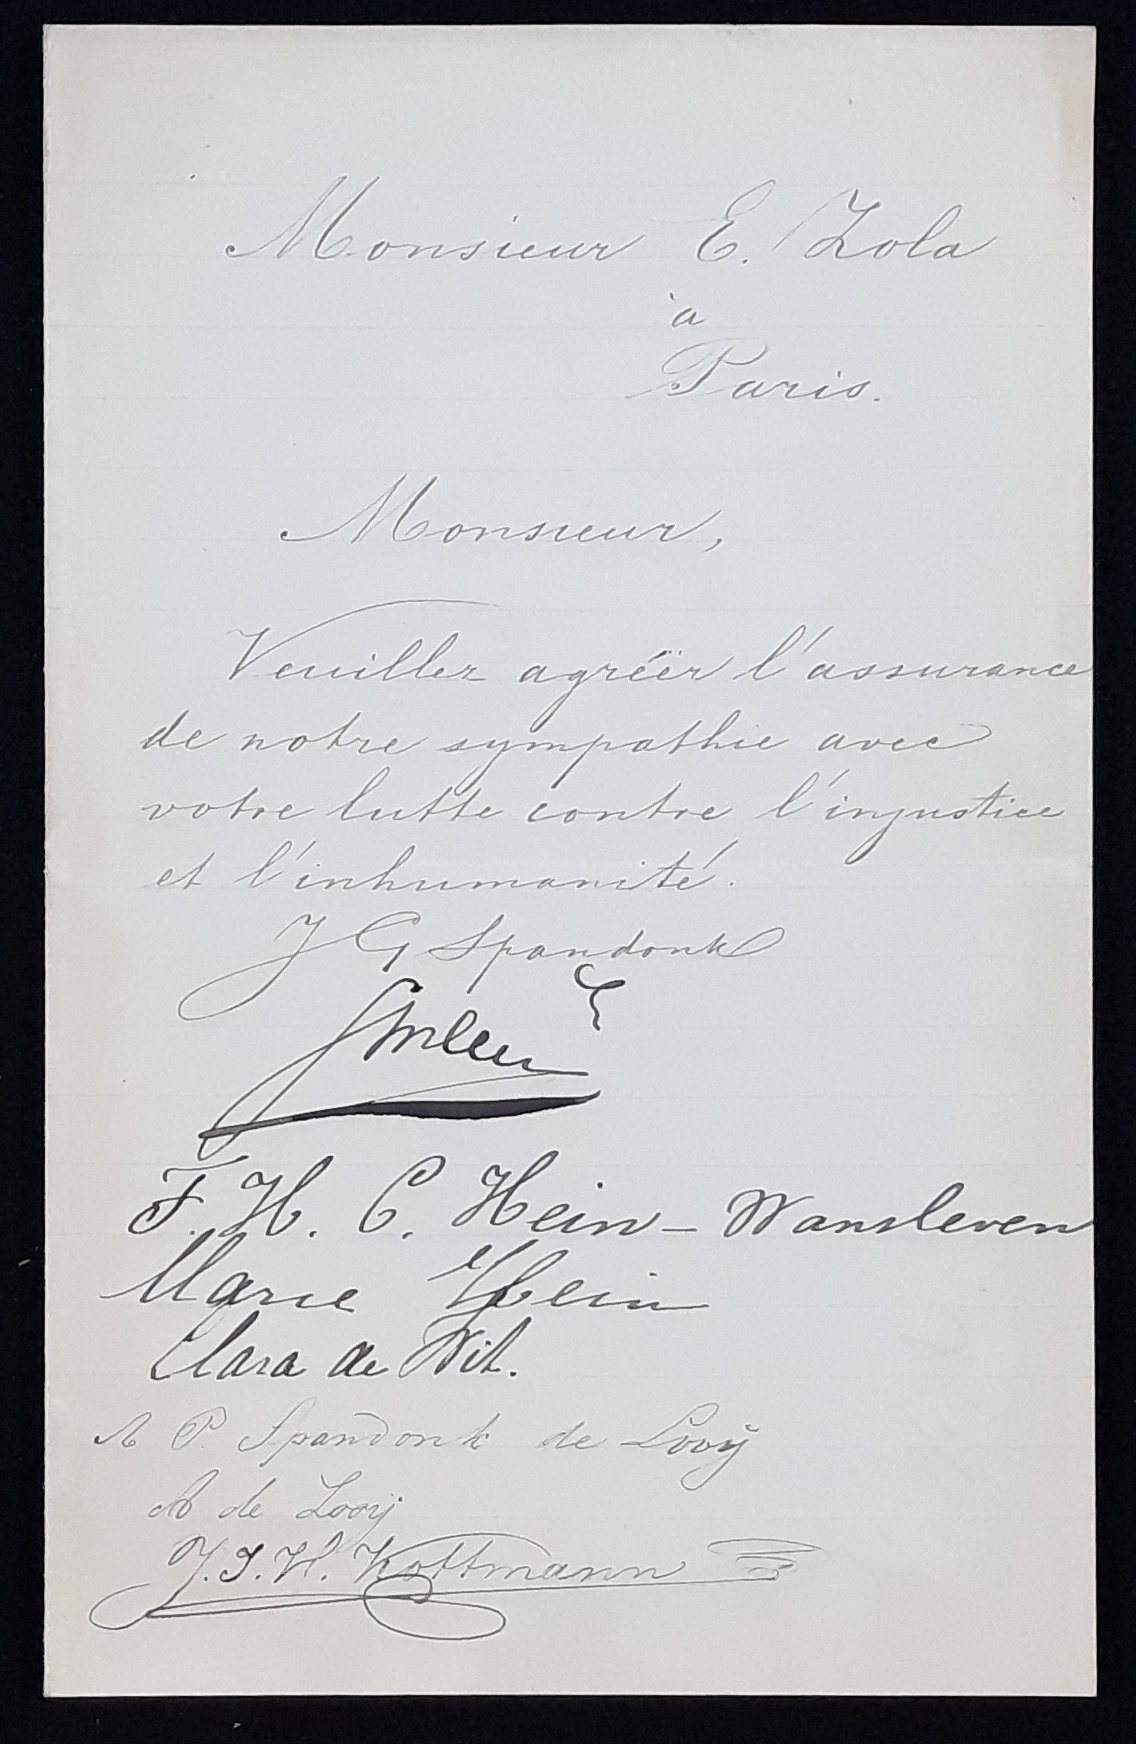 Monsieur E. Zola
à
Paris.
Monsieur,
Veuillez agréër l'assurance
de notre sympathie avec
votre lutte contre l'injustice
et l'inhumanité.
J G Spandonk
F. H. C. Hein - Wansleven
Marie Hein
Clara de Wit.
A P. Spandonk de Looÿ
A de Looij
J. J. H. Kottmann